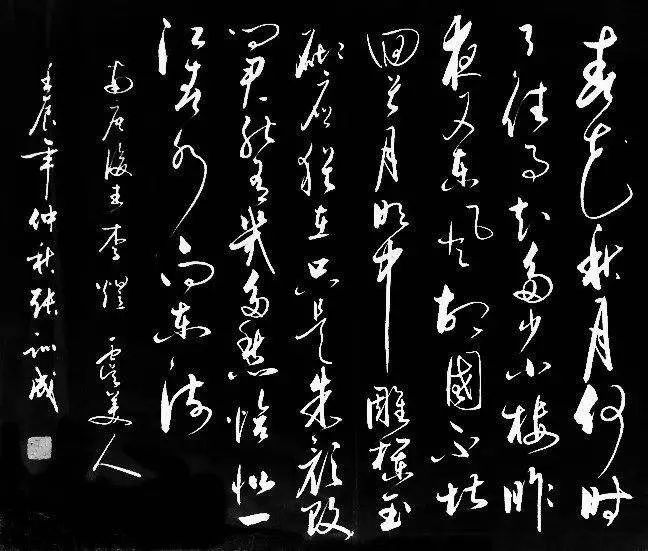 春花秋月何时
了往事知多少小楼昨
夜又东风故國不堪
回首月明中雕欄玉
砌应犹在只是朱颜改
问君能有幾多愁恰似一
江春水向东流
南唐後主李煜 虞美人
壬辰年仲秋张训成